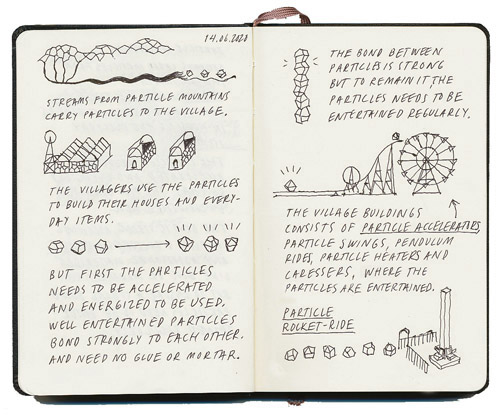 14.06.2020
STREAMS FROM PARTICLE MOUNTAINS
CARRY PARTICLES TO THE VILLAGE.
THE VILLAGERS USE THE PARTICLES
TO BUILD THEIR HOUSES AND EVERY-
DAY ITEMS.
BUT FIRST THE PARTICLES
NEEDS TO BE ACCELERATED
AND ENERGIZED TO BE USED.
WELL ENTERTAINED PARTICLES
BOND STRONGLY TO EACH OTHER.
AND NEED NO GLUE OR MORTAR.
THE BOND BETWEEN
PARTICLES IS STRONG
BUT TO REMAIN IT, THE
PARTICLES NEEDS TO BE
ENTERTAINED REGULARLY.
THE VILLAGE BUILDINGS
CONSISTS OF PARTICLE ACCELERATORS,
PARTICLE SWINGS, PENDULUM
RIDES, PARTICLE HEATERS AND
CARESSERS, WHERE THE
PARTICLES ARE ENTERTAINED.
PARTICLE
ROCKET-RIDE